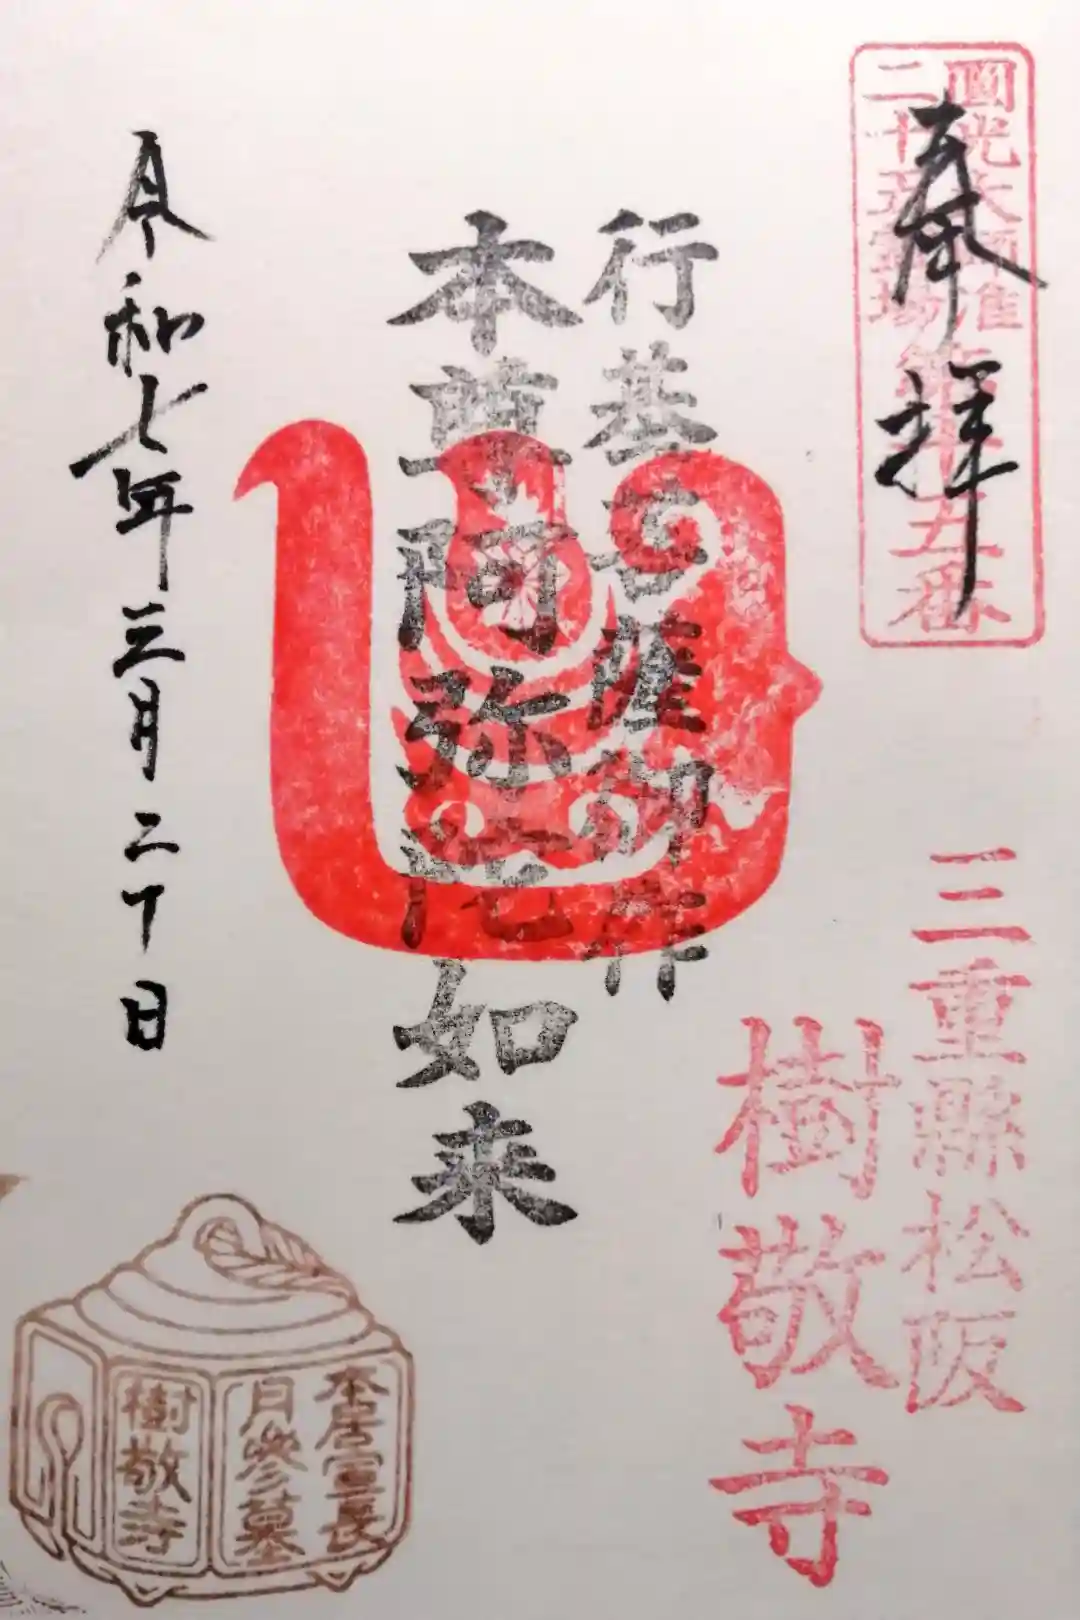 圓光大師准
二十五霊場
第十五番
奉拝
三重縣松阪
樹敬寺
行基菩薩御作
本尊阿弥陀如来
令和七年三月二十日
本居宣長
月參墓
樹敬寺